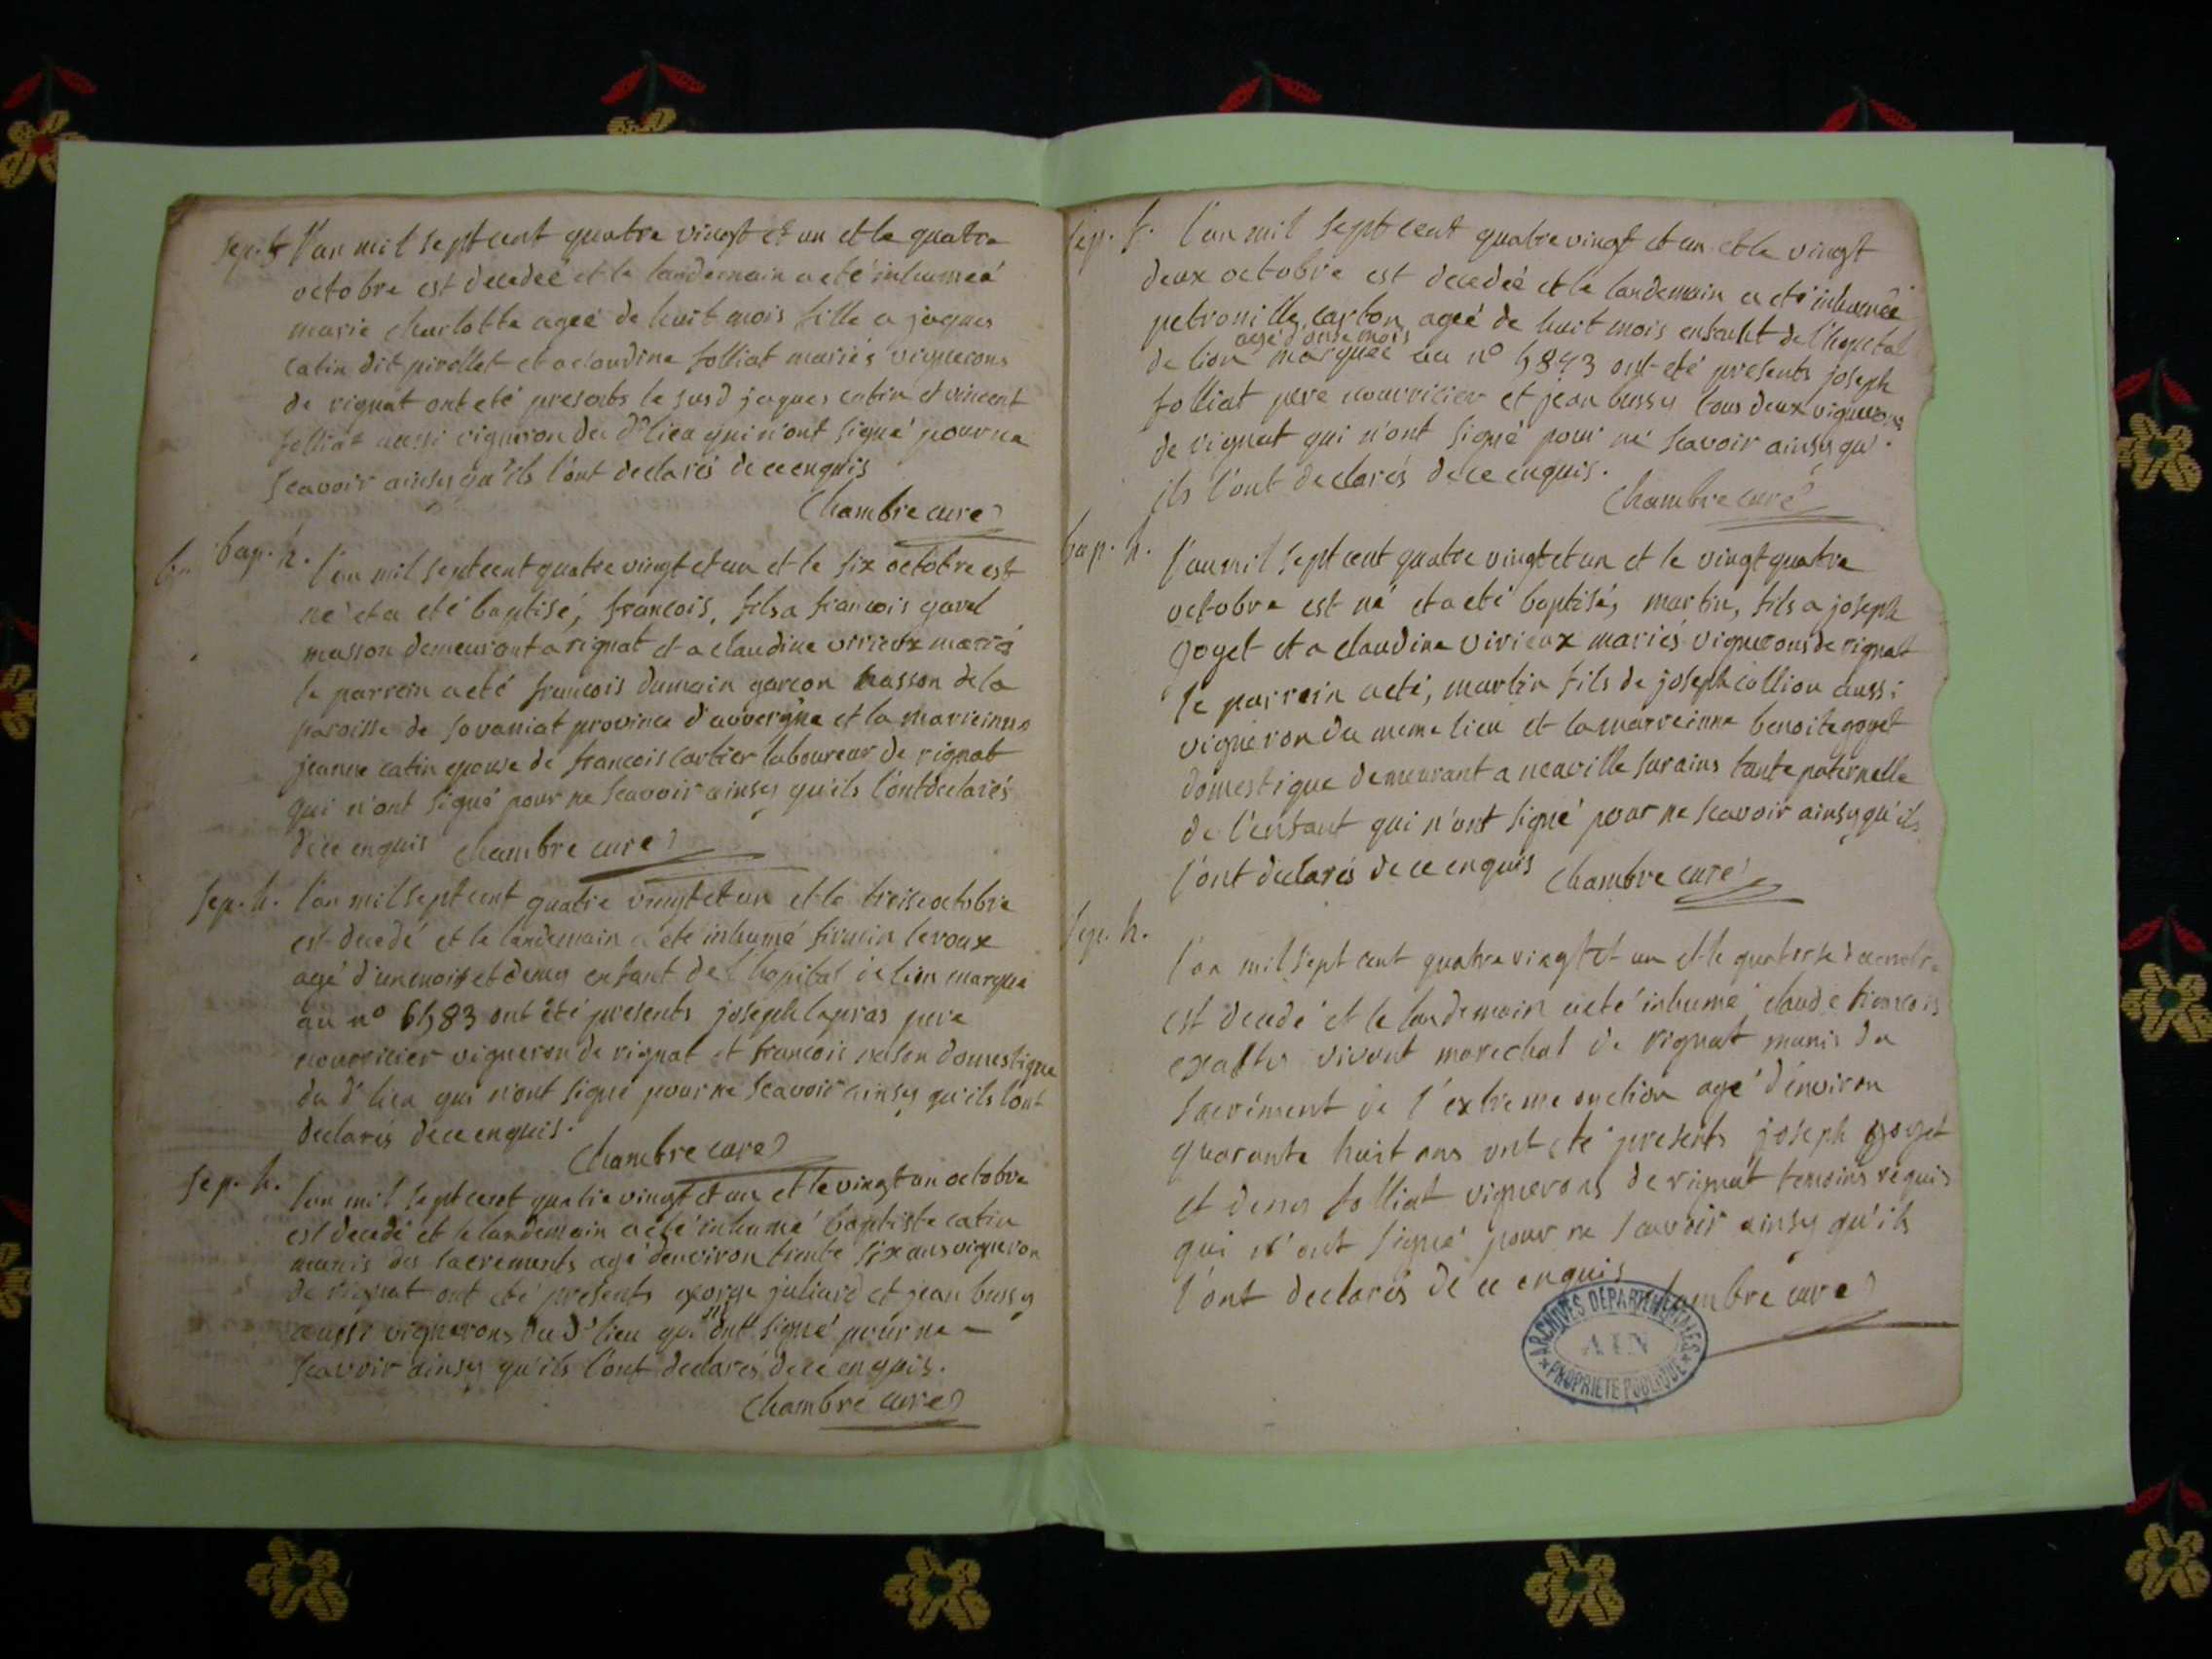 sep. f. l'an mil sept cent quatre vingt et un et le quatre
octobre est decedeé et le landemain a eté inhumeé
marie charlotte ageé de huit mois fille a jaques
catin dit pirollet et a claudine folliat mariés vignerons
de rignat ont eté presents le susd jaques catin et vincent
folliat aussi vigneron du dt lieu qui n'ont signé pour ne
scavoir ainsy qu'ils l'ont declarés de ce enquis
Chambre curé
bap. h. l'an mil sept cent quatre vingt et un et le six octobre est
né et a eté baptisé, francois, fils a francois gavel
masson demeurant a rignat et a claudine virieux mariés
le parrein a eté francois dumain garcon masson de la
paroisse de sovaniat province d'auvergne et la marreinne
jeanne catin epouse de francois cartier laboureur de rignat
qui n'ont signé pour ne scavoir ainsy qu'ils l'ont declarés
de ce enquis Chambre curé
sep. h. l'an mil sept cent quatre vingt et un et le treise octobre
est decedé et le landemain a eté inhumé firmin leroux
agé d'un mois et demy enfant de l'hopital de lion marqué
au no 6583 ont eté presents joseph lapras pere
nourricier vigneron de rignat et francois domestique
du dt lieu qui n'ont signé pour ne scavoir ainsy qu'ils l'ont
declarés de ce enquis.
Chambre curé
sep. h. l'an mil sept cent quatre vingt et un et le vingt un octobre
est decedé et le landemain a eté inhumé baptiste catin
munis des sacrements agé denviron trente six ans vigneron
de rignat ont eté presents george juliard et jean bussy
aussi vignerons du dt lieu qui n'ont signé pour ne
scavoir ainsy qu'ils l'ont declarés de ce enquis.
Chambre curé
sep. f. l'an mil sept cent quatre vingt et un et le vingt
deux octobre est decedeé et le landemain a eté inhumeé
petronille carbon ageé de huit mois enfant de l'hopital
agé d'onse mois
de lion marqueé au no 5843 ont eté presents joseph
folliat pere nourricier et jean bussy tous deux vignerons
de rignat qui n'ont signé pour ne scavoir ainsy qu'
ils l'ont declarés de ce enquis.
Chambre curé
bap. h. l'an mil sept cent quatre vingt et un et le vingt quatre
octobre est né et a eté baptisé, martin, fils a joseph
goyet et a claudine virieux mariés vignerons de rignat
le parrein a eté, martin fils de joseph collion aussi
vigneron du meme lieu et la marreinne benoite goyet
domestique demeurant a neuville sur ains tante paternelle
de l'enfant qui n'ont signé pour ne scavoir ainsy qu'ils
l'ont declarés de ce enquis Chambre curé
sep. h.
l'an mil sept cent quatre vingt et un et le quatorse decembre
est decedé et le landemain a eté inhumé claude francois
vivant marechal de rignat munis du
sacrement de l'extreme onction agé d'environ
quarante huit ans ont eté presents joseph goyet
et denis folliat vignerons de rignat temoins requis
qui n'ont signé pour ne scavoir ainsy qu'ils
l'ont declarés de ce enquis Chambre curé
ARCHIVES DEPARTEMENTALES
AIN
* PROPRIETE PUBLIQUE *